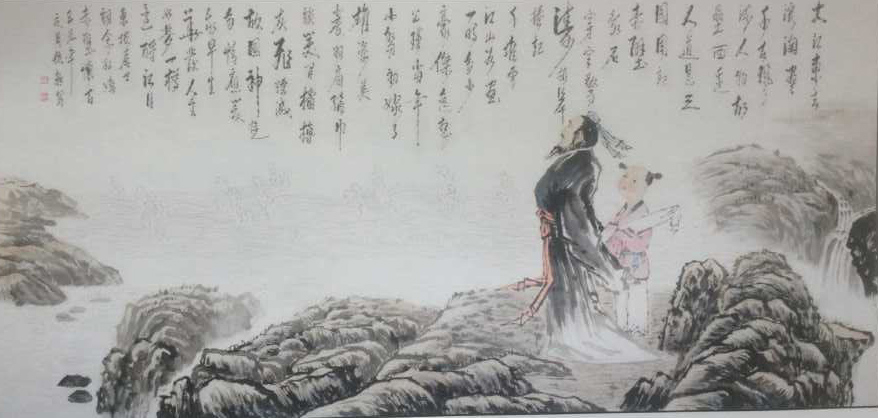 大江東去
浪淘盡
千古風
流人物故
壘西邊
人道是三
國周郎
赤壁
亂石
穿空驚
濤拍岸
捲起
千堆雪
江山如畫
一時多少
豪傑遙想
公瑾當年
小喬初嫁了
雄姿英
發羽扇綸巾
談笑間檣櫓
灰飛煙滅
故國神遊
多情應笑
我早生
華髮人生
如夢一樽
還酹江月
東坡居士
念奴嬌
赤壁懷古